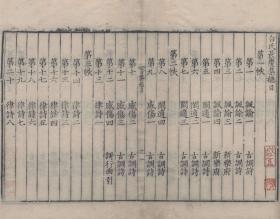 白氏長慶集總目
第一帙
第一 諷諭一 古調詩
第二 諷諭二 古調詩
第三 諷諭三 新樂府
第四 諷諭四 新樂府
第五 閒適一 古調詩
第六 閒適二 古調詩
第二帙
第八 閒適四 古調詩
第九 感傷一 古調詩
第十 感傷二 古調詩
第十一 感傷三 古調詩
第十二 感傷四
第三帙
第十三 律詩一
第十四 律詩二
第十五 律詩三
第十六 律詩四
第十七 律詩五
第十八 律詩六
第十九 律詩七
第二十 律詩八